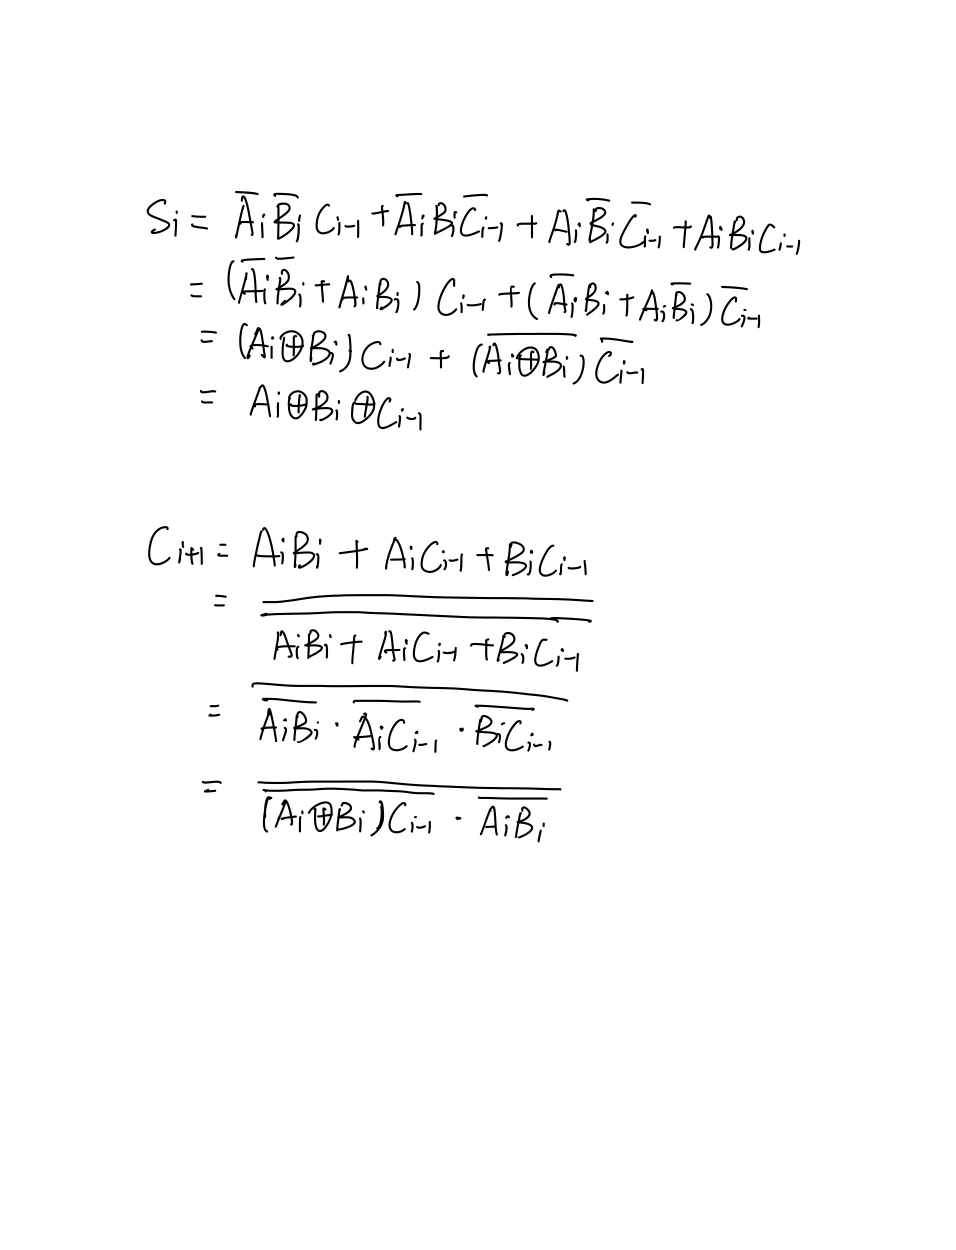 Si = A̅i B̅i Ci-1 + A̅i Bi C̅i̅-̅1̅ + Ai B̅i C̅i̅-̅1̅ + Ai Bi Ci-1
= (A̅i B̅i + Ai Bi) Ci-1 + (A̅i Bi + Ai B̅i) C̅i̅-̅1̅
= (Ai⊕Bi) Ci-1 + \overline{(Ai⊕Bi)} \overline{Ci-1}
= Ai⊕Bi⊕Ci-1
Ci+1 = AiBi + AiCi-1 + BiCi-1
= \overline{\overline{AiBi + AiCi-1 + BiCi-1}}
= \overline{\overline{AiBi} · \overline{AiCi-1} · \overline{BiCi-1}}
= \overline{\overline{(Ai⊕Bi)Ci-1} · \overline{AiBi}}